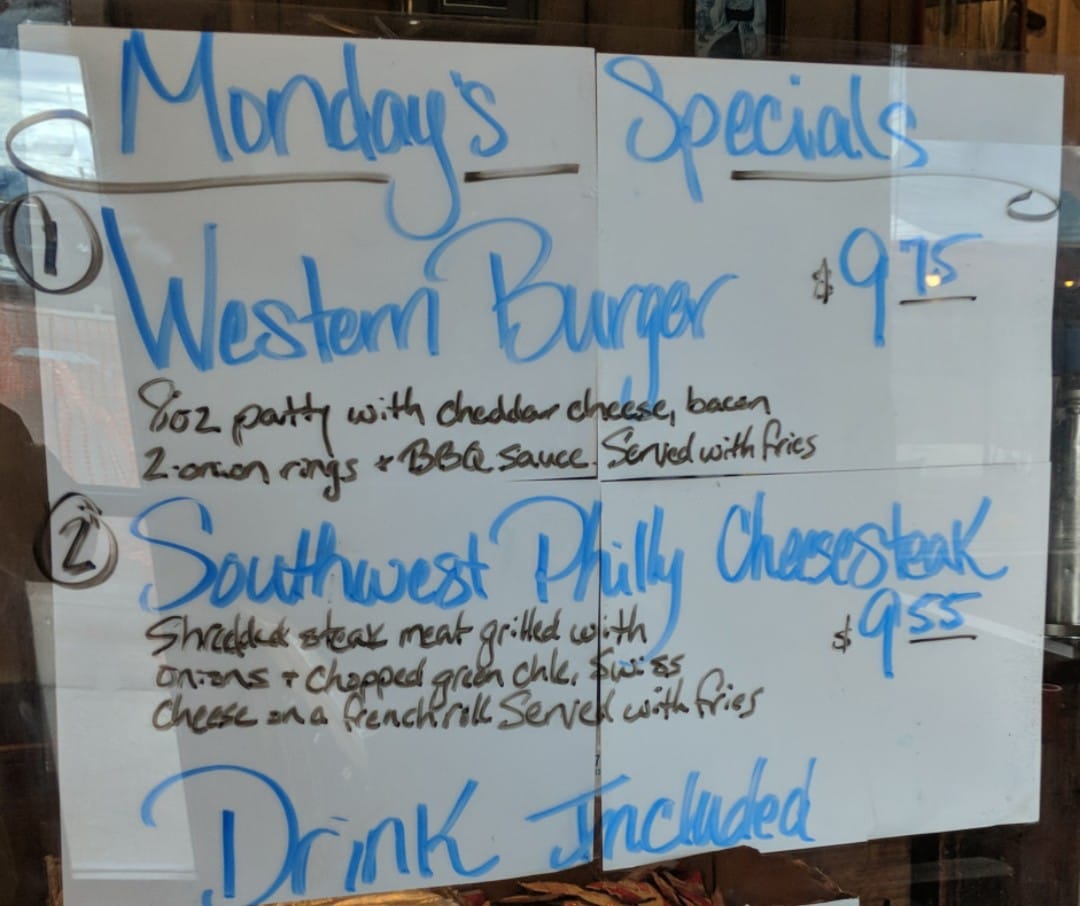 Monday's Specials
1 Western Burger $9 75
8oz patty with cheddar cheese, bacon
2 onion rings + BBQ sauce. Served with fries
2 Southwest Philly Cheesesteak
$9 55
Shredded steak meat grilled with
onions + chopped green chle, swiss
cheese on a french roll Served with fries
Drink Included